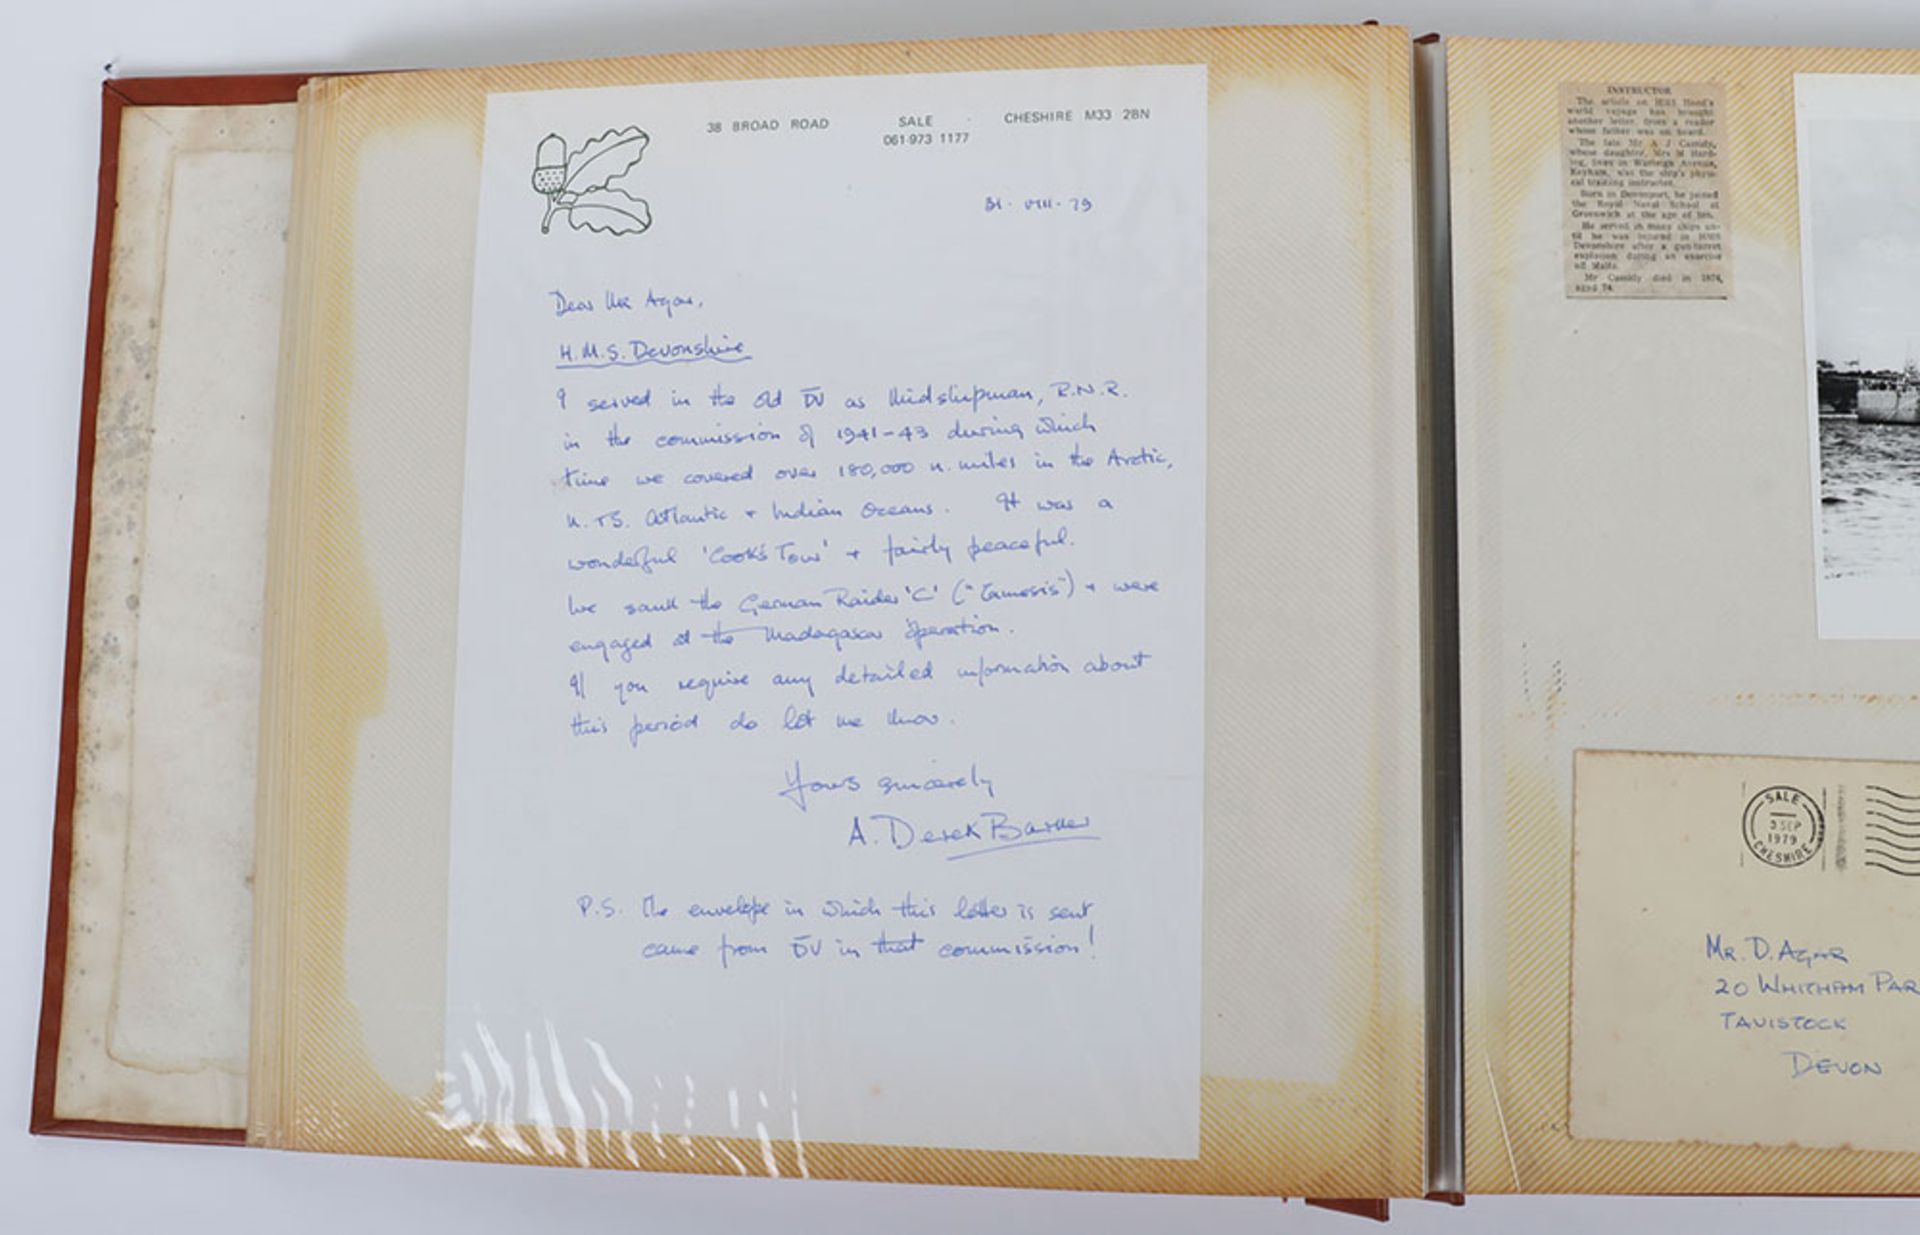 38 BROAD ROAD SALE · CHESHIRE M33 2BN
061-973 1177
31 · VIII · 79
Dear Mr Agar,
H.M.S. Devonshire
I served in the old DV as Midshipman, R.N.R.
in the commission of 1941-43 during which
time we covered over 180,000 n. miles in the Arctic,
N. + S. Atlantic + Indian Oceans. It was a
wonderful 'Cook's Tour' + fairly peaceful.
We sank the German Raider 'C' ("Tamesis") + were
engaged at the Madagascar operation.
If you require any detailed information about
this period do let me know.
Yours sincerely
A. Derek Barker
P.S. The envelope in which this letter is sent
came from DV in that commission!
INSTRUCTOR
The article on HMS Hood's
world voyage has brought
another letter, from a reader
whose father was on board.
The late Mr A J Cassidy,
whose daughter, Mrs M Hard-
ing, lives in Avenue,
Keyham, was the ship's physi-
cal training instructor.
Born in Devonport, he joined
the Royal Naval School at
Greenwich at the age of ten.
He served in many ships un-
til he was injured in HMS
Devonshire after a gun-turret
explosion during an exercise
off Malta.
Mr Cassidy died in 1978,
aged 74.
SALE
3 SEP
1979
CHESHIRE
MR. D. AGAR
20 WHITHAM PAR
TAVISTOCK
DEVON